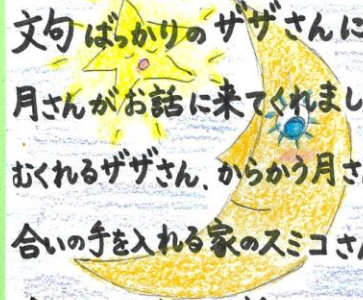 文句ばっかりのザザさんに
月さんがお話に来てくれまし
むくれるザザさん、からかう月さ
合いの手を入れる家のスミコさ